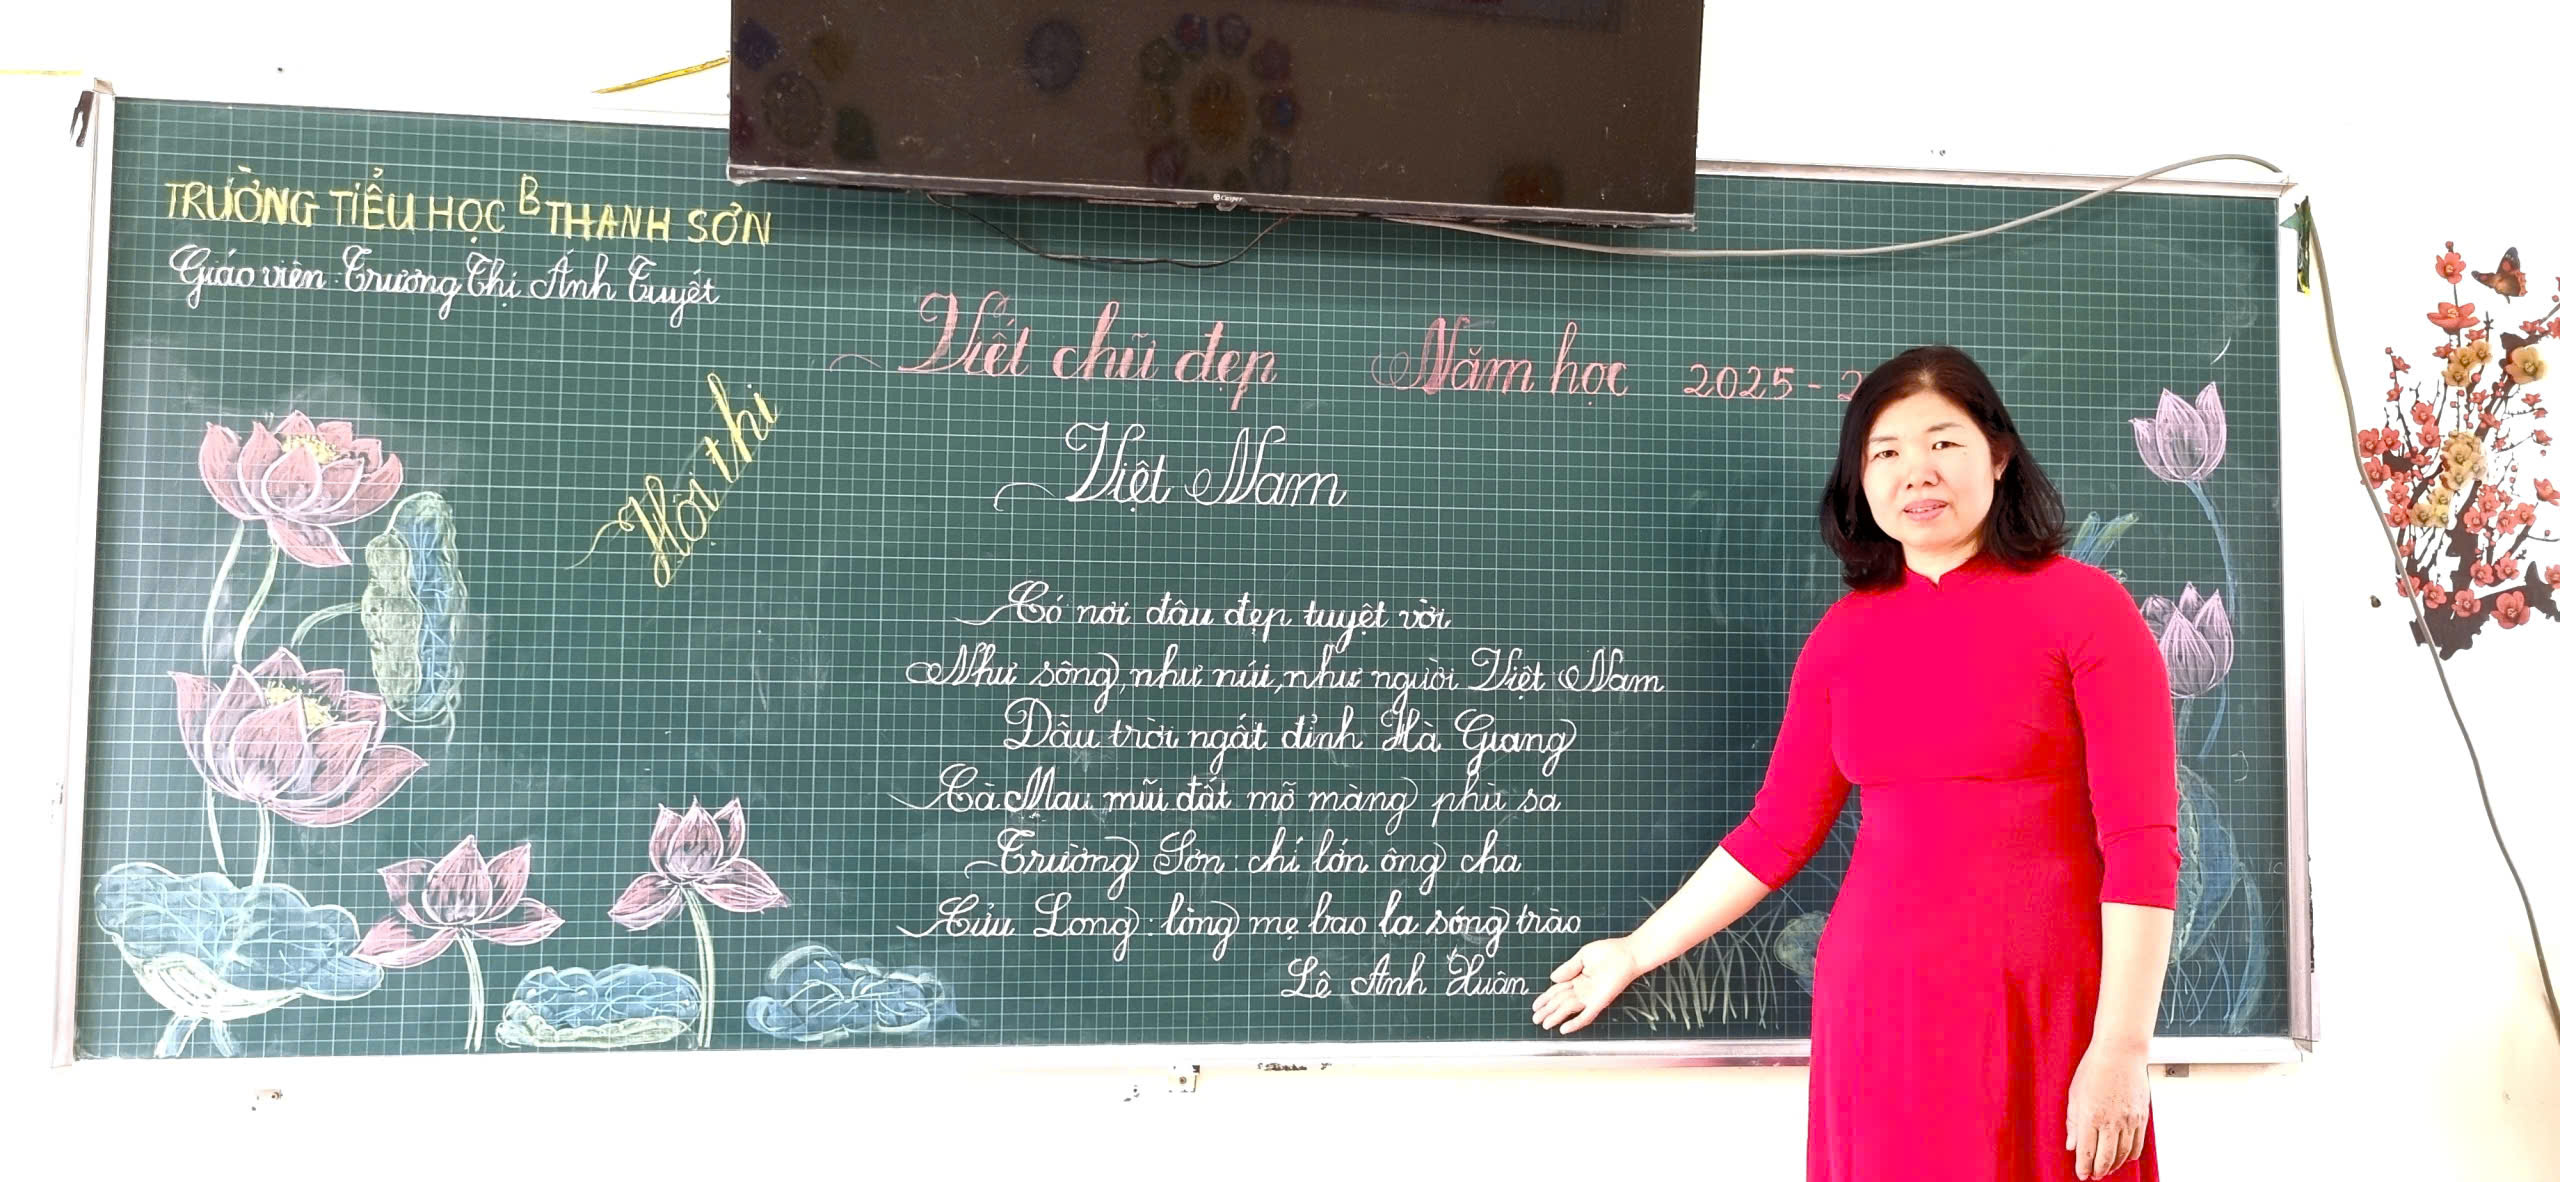 Casper
TRƯỜNG TIỂU HỌC B THANH SƠN
Giáo viên: Trương Thị Ánh Tuyết
Hội thi
Viết chữ đẹp Năm học 2025 - 2
Việt Nam
Có nơi đâu đẹp tuyệt vời
Như sông, như núi, như người Việt Nam
Dầu trời ngất đỉnh Hà Giang
Cà Mau mũi đất mỡ màng phù sa
Trường Sơn: chí lớn ông cha
Cửu Long: lòng mẹ bao la sóng trào
Lê Anh Xuân